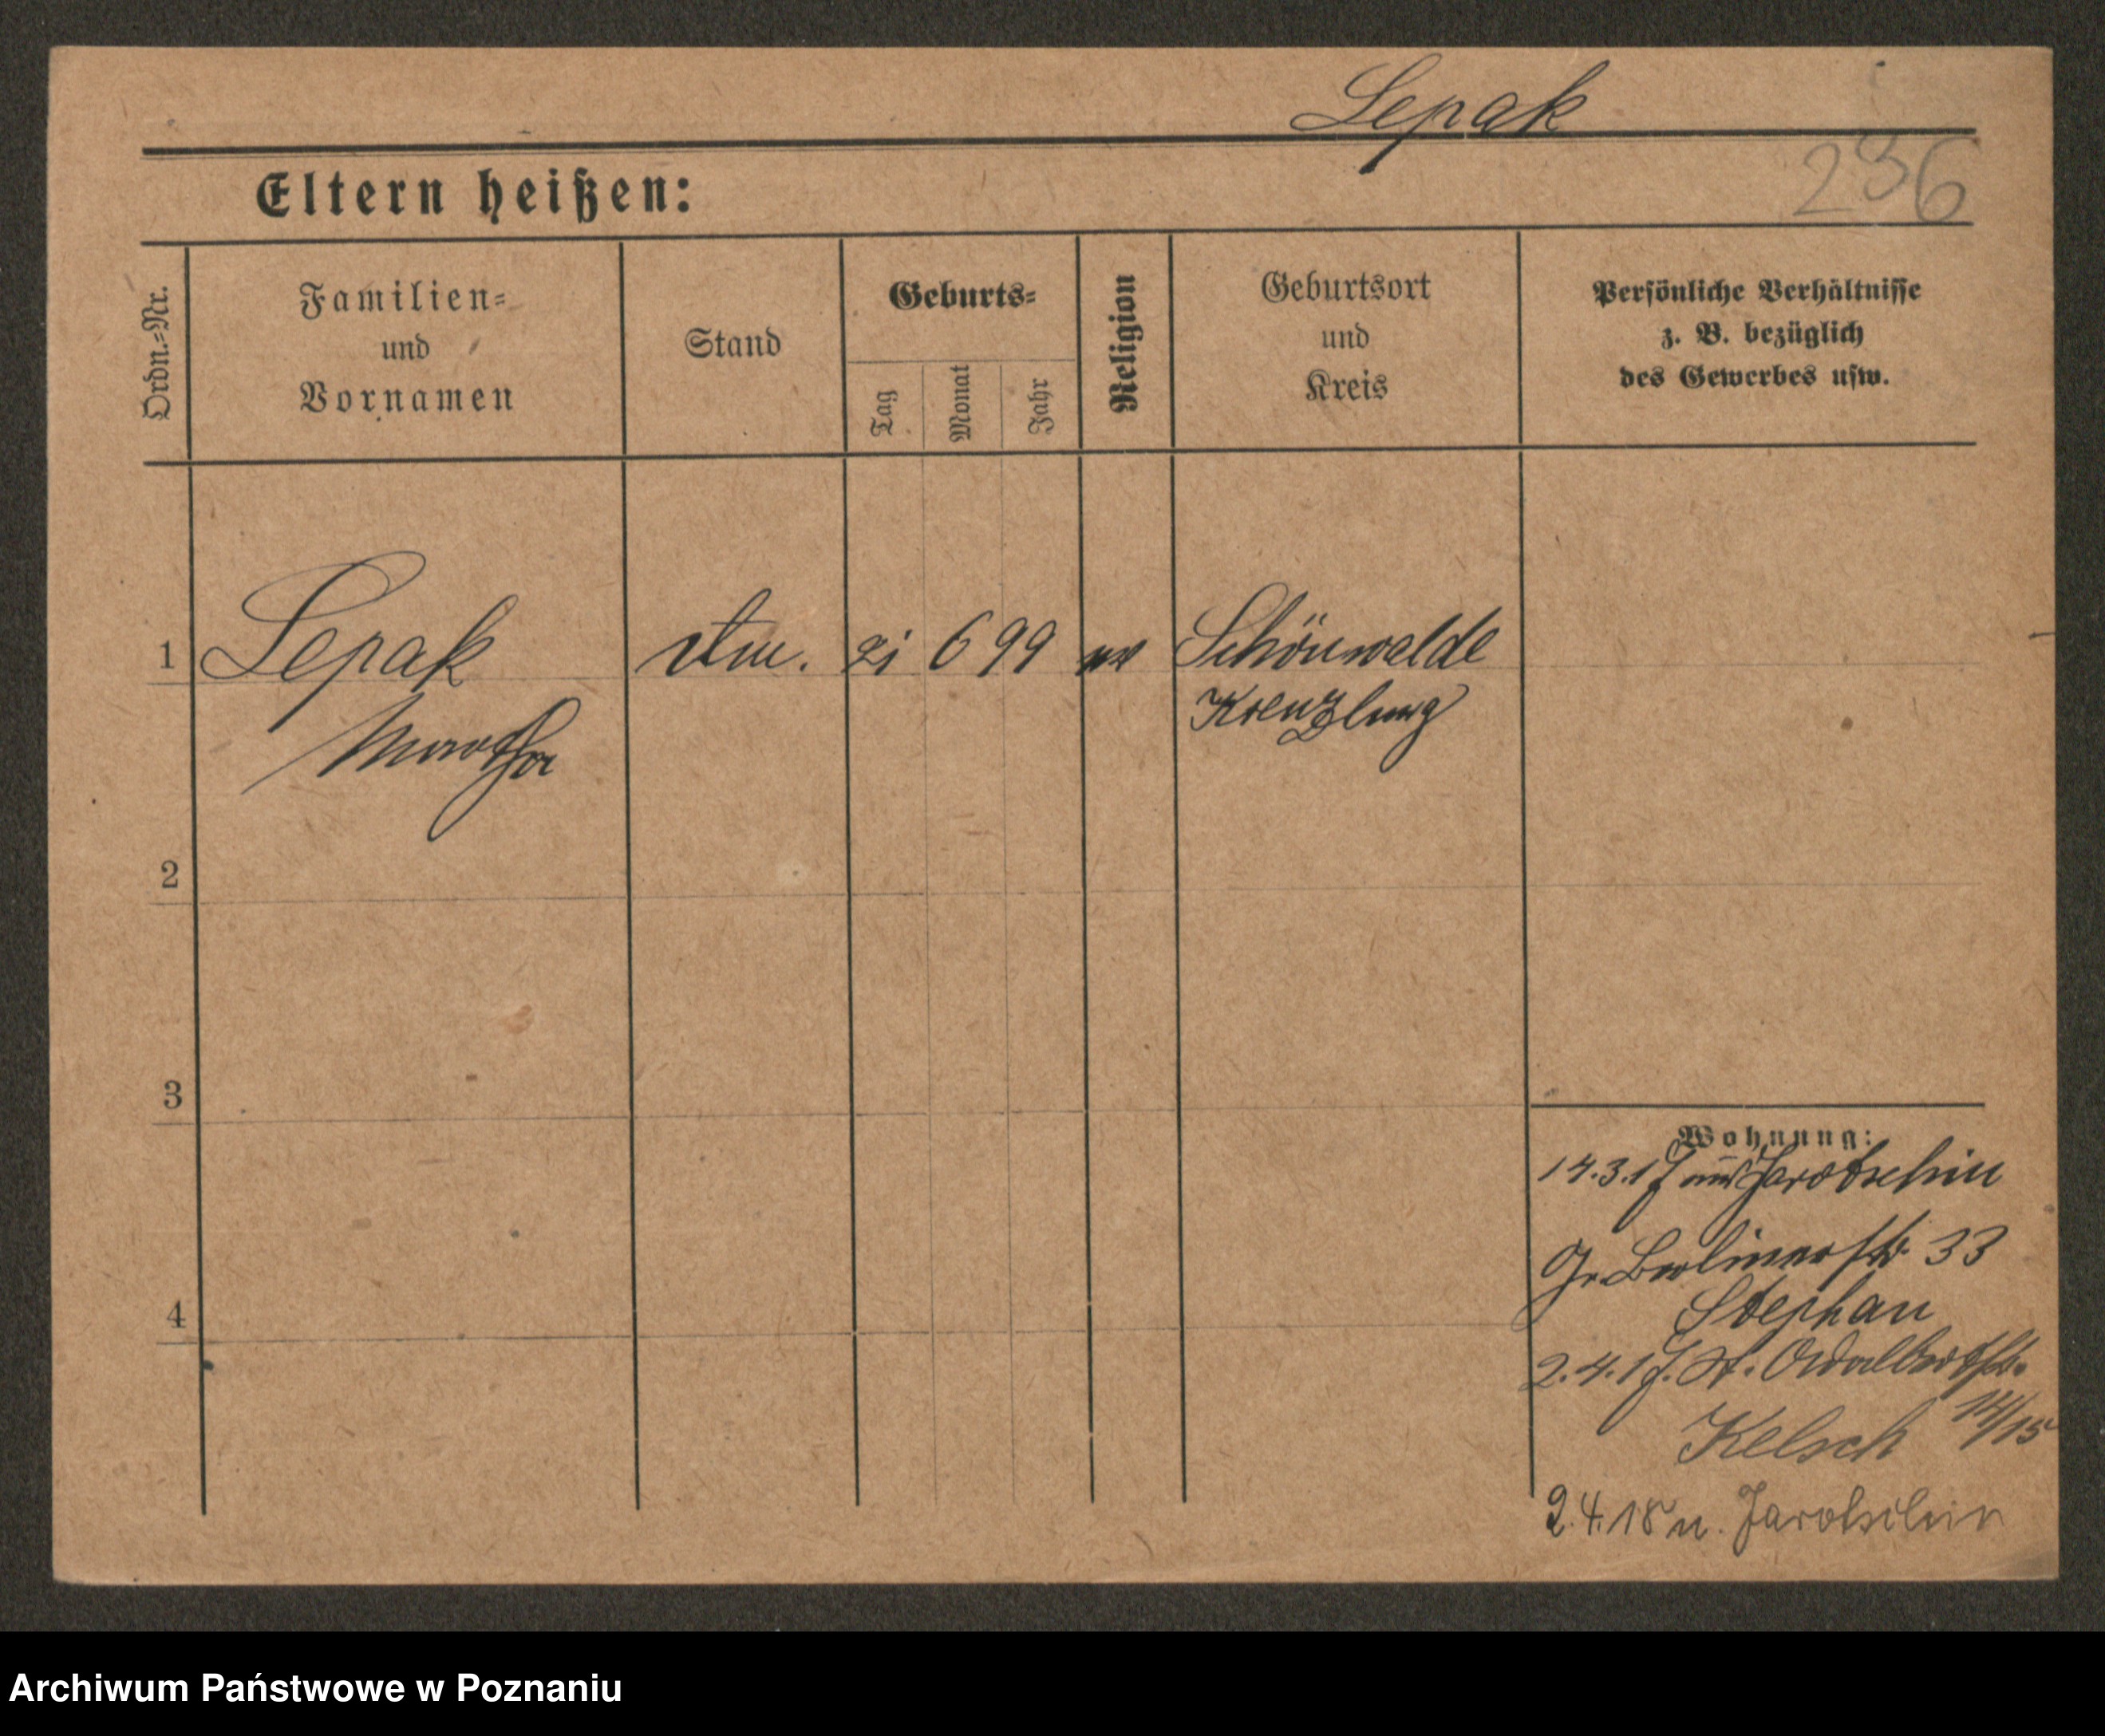 Lepak
236
Eltern heißen:
Ordn.-Nr.
Familien- und Vornamen
Stand
Geburts-
Tag
Monat
Jahr
Religion
Geburtsort und Kreis
Persönliche Verhältnisse z. B. bezüglich des Gewerbes usw.
1 Lepak 6 99 Schönwalde
Martha Kreuzburg
2
3
4
Wohnung:
14.3.17 aus Jarotschin
Gr. Berlinerstr. 33
Stephan
2.4.17. St. Adalbertstr.
14/15
Kelsch
2.4.18 n. Jarotschin
Archiwum Państwowe w Poznaniu